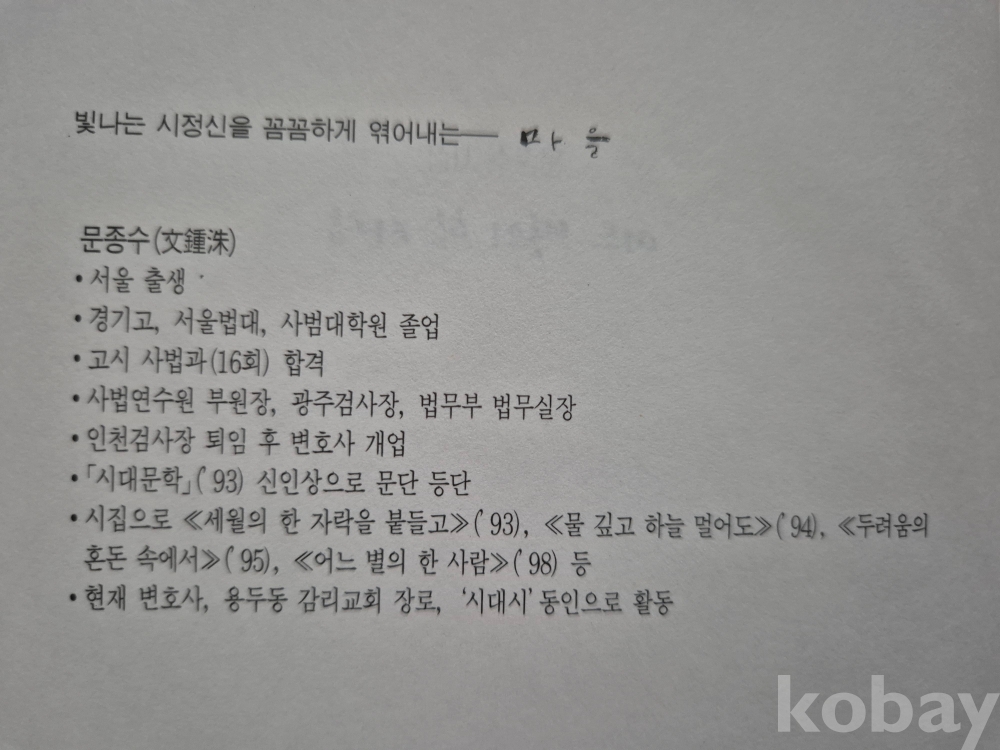 빛나는 시정신을 꼼꼼하게 엮어내는── 마을
문종수(文鍾洙)
• 서울 출생
• 경기고, 서울법대, 사법대학원 졸업
• 고시 사법과(16회) 합격
• 사법연수원 부원장, 광주검사장, 법무부 법무실장
• 인천검사장 퇴임 후 변호사 개업
• 「시대문학」('93) 신인상으로 문단 등단
• 시집으로 ≪세월의 한 자락을 붙들고≫('93), ≪물 깊고 하늘 멀어도≫('94), ≪두려움의
혼돈 속에서≫('95), ≪어느 별의 한 사람≫('98) 등
• 현재 변호사, 용두동 감리교회 장로, '시대시' 동인으로 활동
kobay